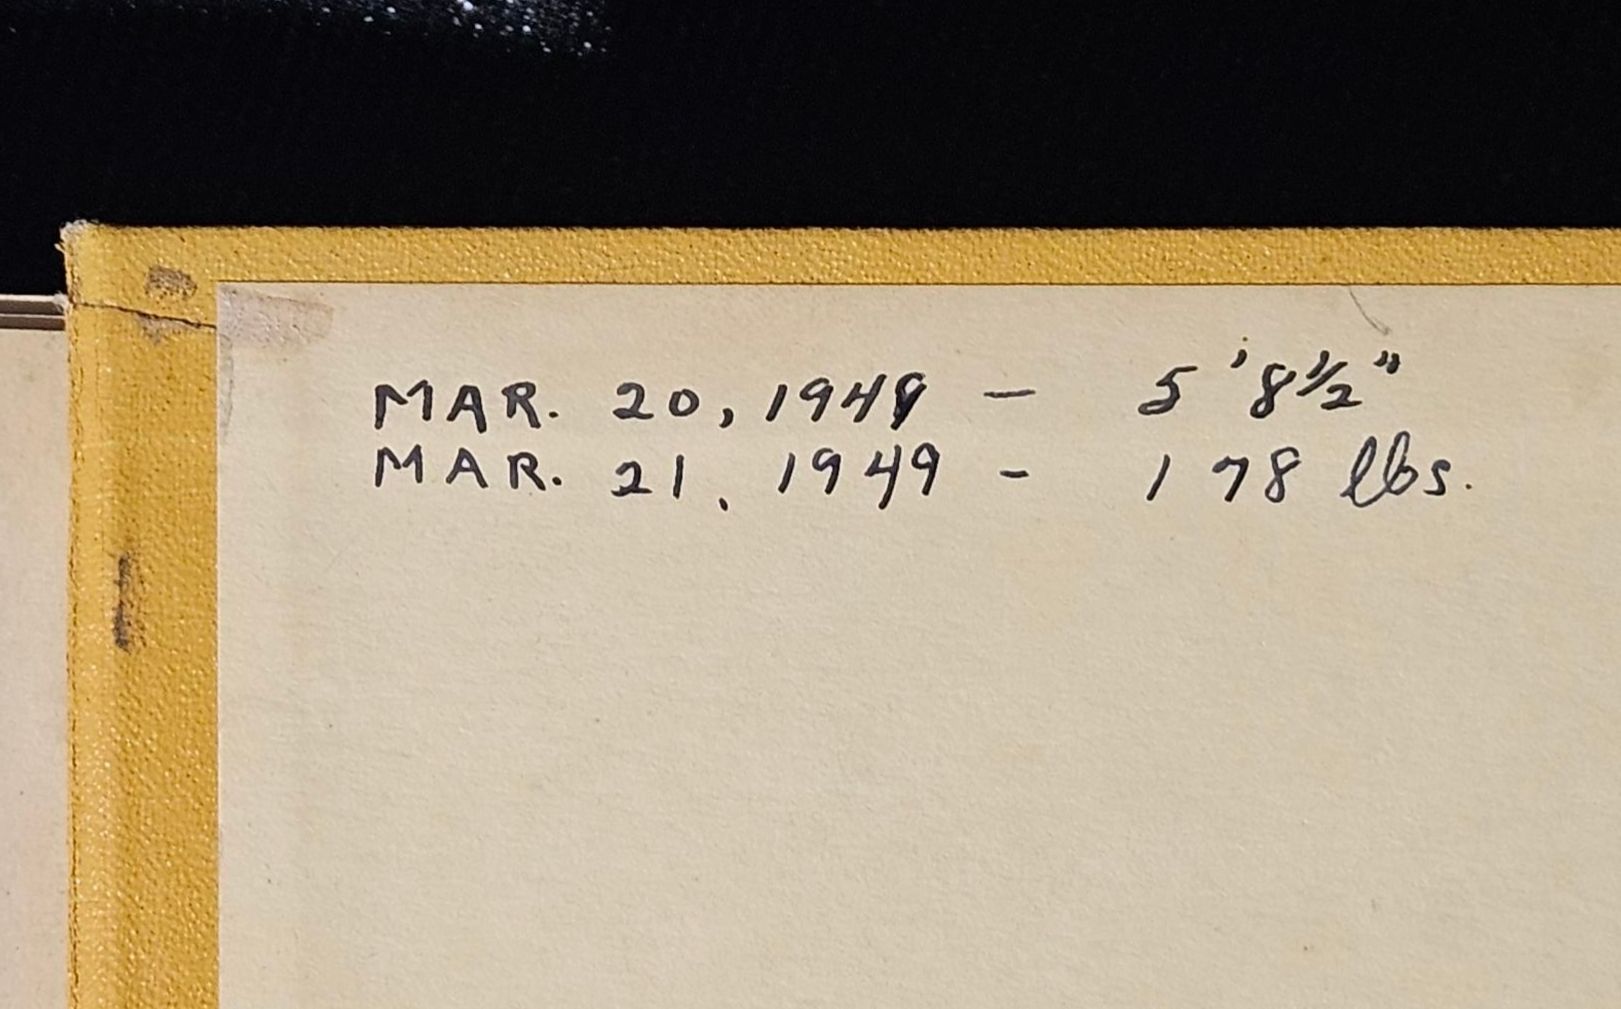 MAR. 20, 1949 — 5'8½"
MAR. 21. 1949 - 178 lbs.